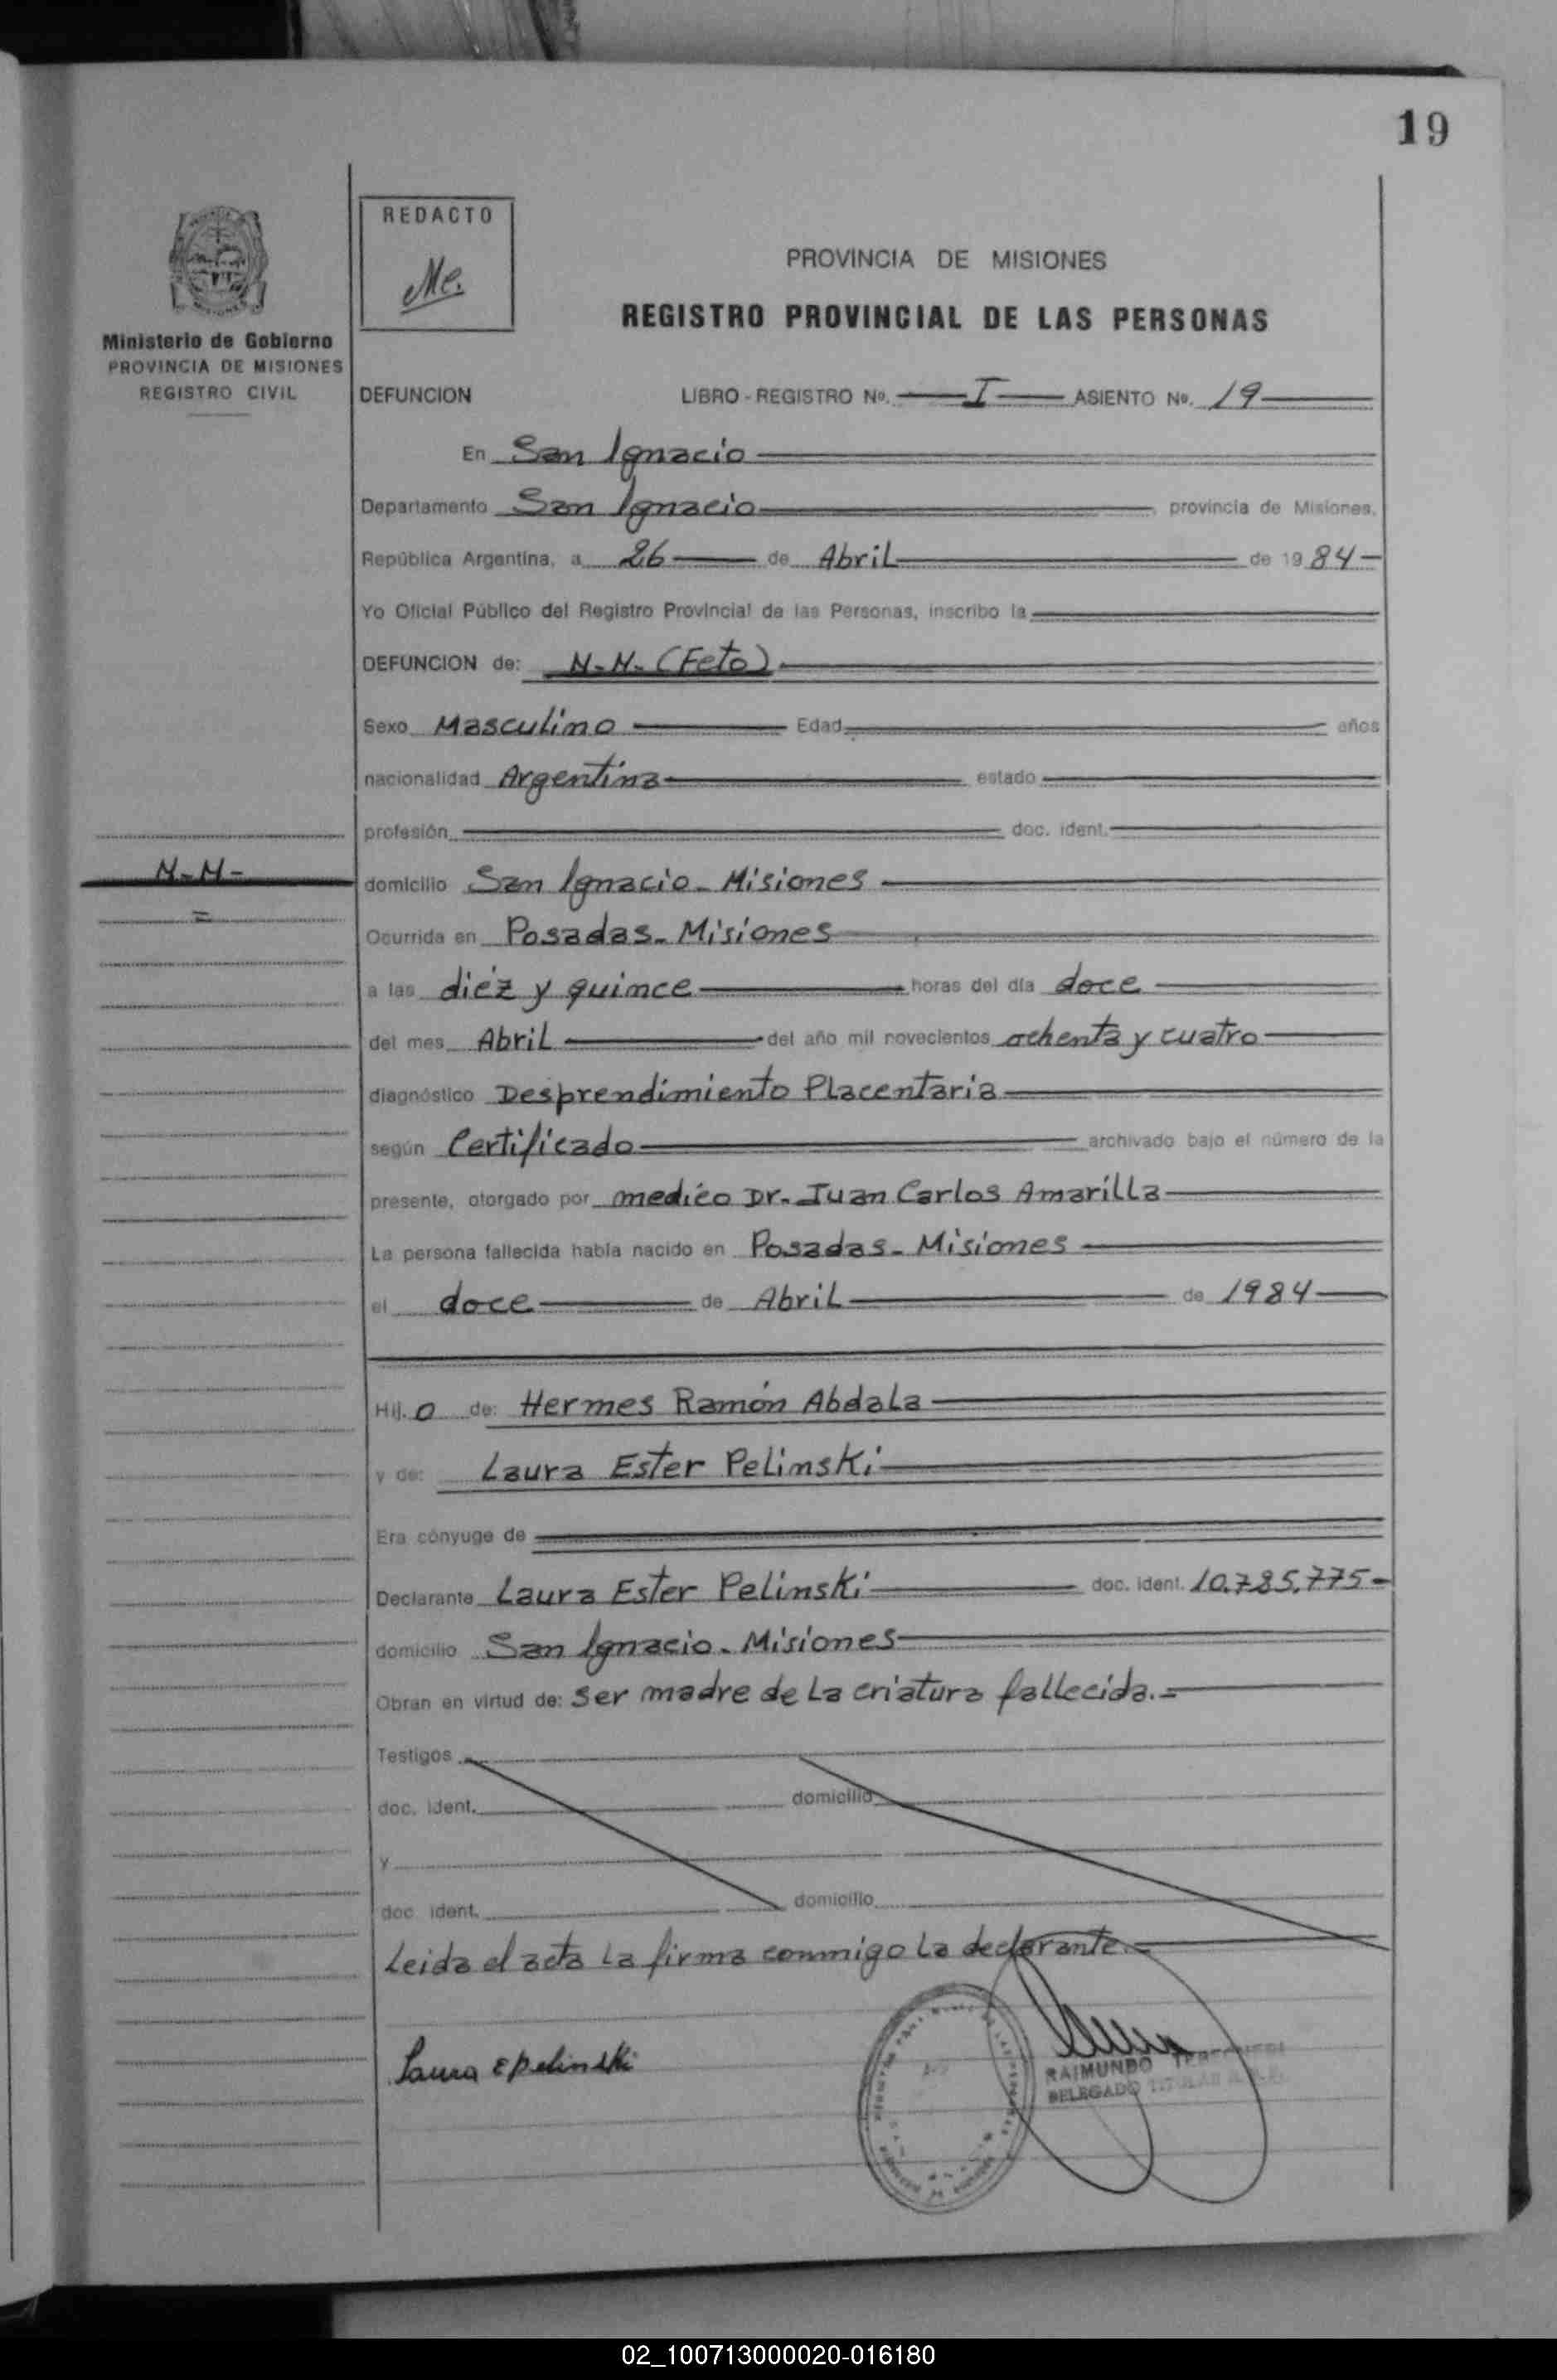 19
REDACTO
Me.
PROVINCIA DE MISIONES
REGISTRO PROVINCIAL DE LAS PERSONAS
Ministerio de Gobierno
PROVINCIA DE MISIONES
REGISTRO CIVIL
DEFUNCION LIBRO - REGISTRO Nº. I ASIENTO Nº. 19
En San Ignacio
Departamento San Ignacio provincia de Misiones,
República Argentina, a 26 de Abril de 1984
Yo Oficial Público del Registro Provincial de las Personas, inscribo la
DEFUNCION de: N-N- (Feto)
Sexo Masculino Edad años
nacionalidad Argentina estado
profesión doc. ident.
N-N-
domicilio San Ignacio - Misiones
Ocurrida en Posadas - Misiones
a las diéz y quince horas del día doce
del mes Abril del año mil novecientos ochenta y cuatro
diagnóstico Desprendimiento Placentaria
según Certificado archivado bajo el número de la
presente, otorgado por medico Dr. Juan Carlos Amarilla
La persona fallecida había nacido en Posadas - Misiones
el doce de Abril de 1984
Hij.o de: Hermes Ramón Abdala
y de: Laura Ester Pelinski
Era cónyuge de
Declarante Laura Ester Pelinski doc. ident. 10.785.775-
domicilio San Ignacio - Misiones
Obran en virtud de: Ser madre de la criatura fallecida.=
Testigos
doc. ident. domicilio
y
doc. ident. domicilio
Leida el acta la firma conmigo la declarante.
Laura E Pelinski
RAIMUNDO
DELEGADO TITULAR
02_100713000020-016180